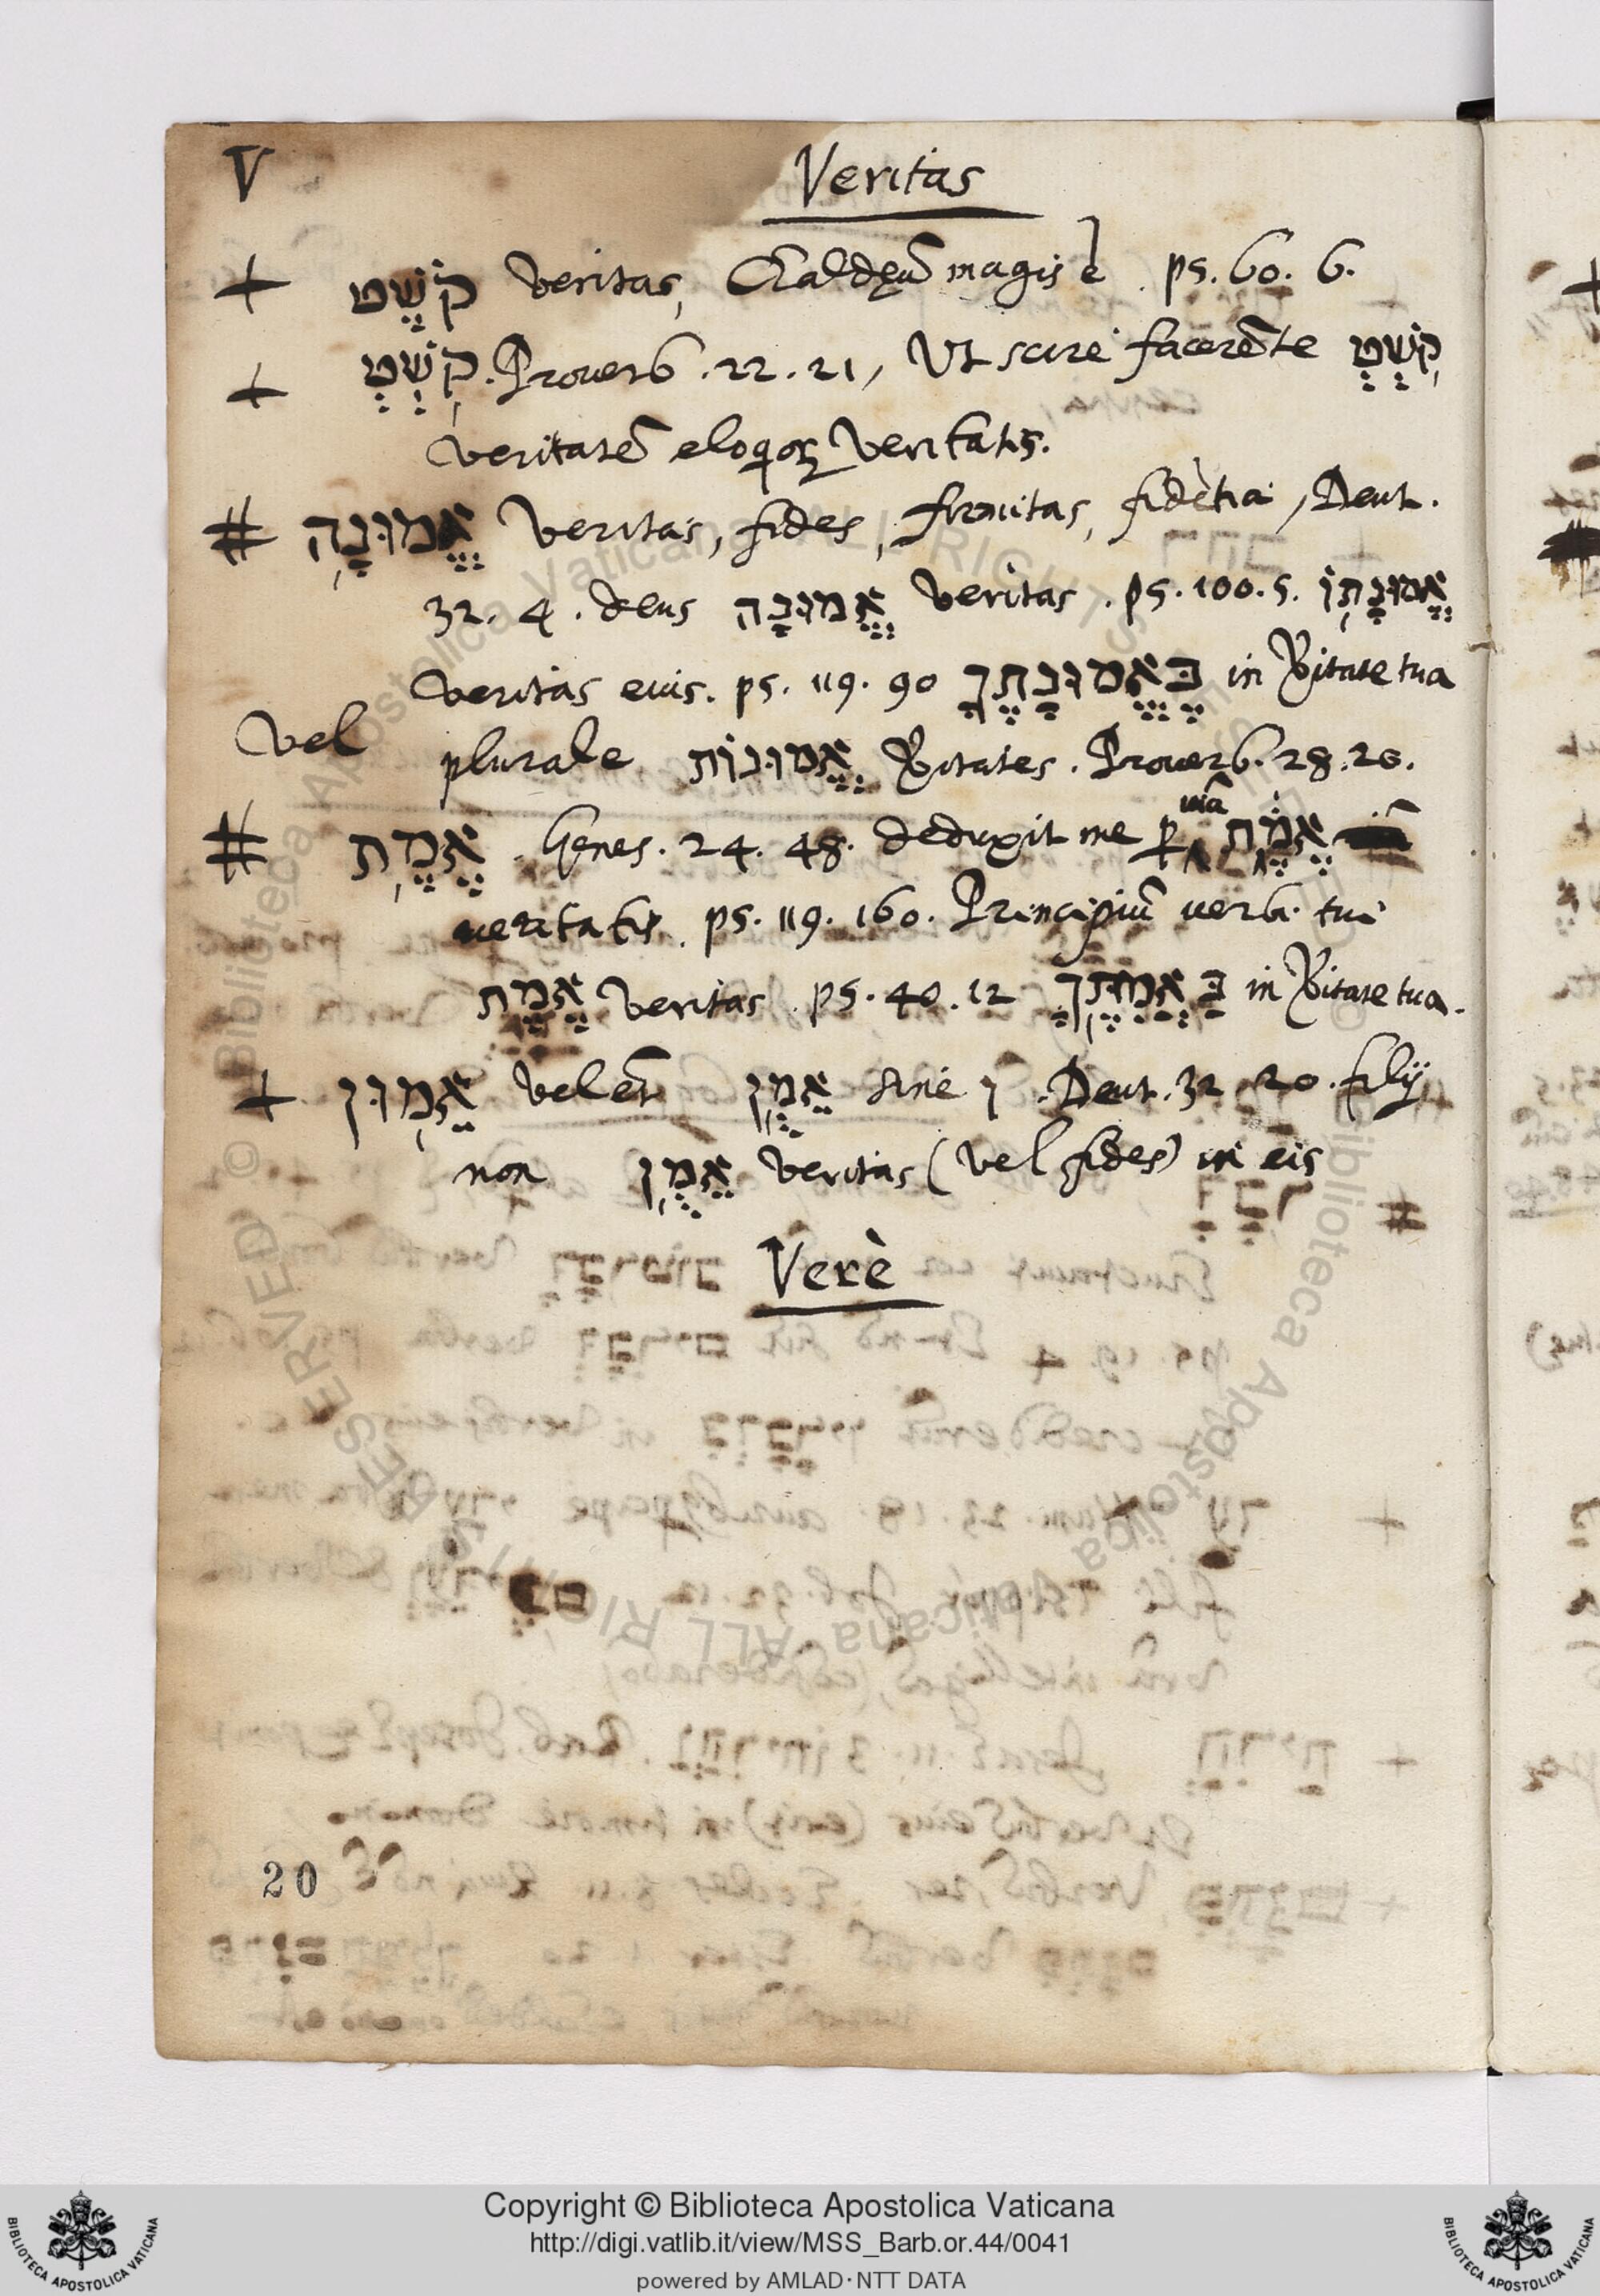 V
Veritas
+ קֹשֶׁט veritas, Chaldeũ magis ẽ . ps. 60. 6.
+ קֹשְׁט . Proverb . 22 . 21 , Ut scire facerẽ te קֹשְׁט
veritatẽ eloqior veritatis.
# אֱמוּנָה veritas, fides, firmitas, fidẽtia , Deut.
32. 4. deus אֱמוּנָה veritas . ps. 100. 5. אֱמוּנָתוֹ
veritas eius. ps. 119. 90 בֶּאֱמוּנָתֶךָ in v̄itate tua
Vel plurale אֱמוּנוֹת v̄itates . Proverb. 28. 20.
# אֱמֶת . Genes. 24. 48. deduxit me ꝑ viã אֱמֶת
veritatis. ps. 119. 160. Principiũ verbi tui
אֱמֶת veritas . ps. 40. 12 בַּאֲמִתֶּךָ in v̄itate tua.
+ אֵמוּן vel et̃ אֵמֻן sine ו . Deut. 32. 20. filij
non אֵמֻן veritas (vel fides) in eis
Verè
20
Copyright © Biblioteca Apostolica Vaticana
http://digi.vatlib.it/view/MSS_Barb.or.44/0041
powered by AMLAD·NTT DATA
BIBLIOTECA APOSTOLICA VATICANA
BIBLIOTECA APOSTOLICA VATICANA